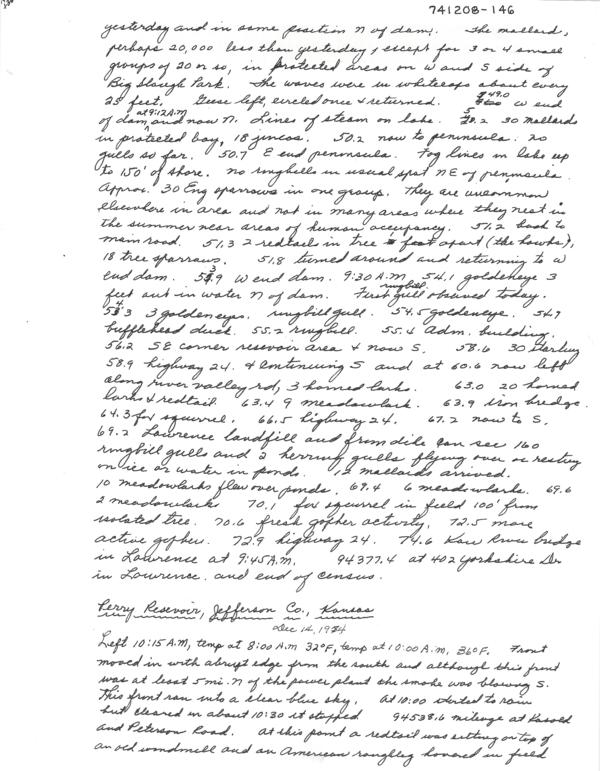 741208-146
yesterday and in same position N of dam. The mallard,
perhaps 20,000 less than yesterday, except for 3 or 4 small
groups of 20 or so, in protected areas on W and S side of
Big Slough Park. The waves were in whitecaps about every
25 feet. Geese left, circled once & returned. 49.0 W end
of dam at 9:12 A.M. and now N. Lines of steam on lake. 50.2 30 mallards
in protected bay, 18 juncos. 50.2 now to peninsula. no
gulls so far. 50.7 E end peninsula. Fog lines in lake up
to 150' of shore. no ringbills in usual spot NE of peninsula.
Approx. 30 Eng sparrows in one group. They are uncommon
elsewhere in area and not in many areas where they nest in
the summer near areas of human occupancy. 51.2 back to
main road. 51.3 2 redtail in tree feet apart (the hawks),
18 tree sparrows. 51.8 turned around and returning to W
end dam. 53.9 W end dam. 9:30 A.M. 54.1 goldeneye 3
feet out in water N of dam. First ringbill gull observed today.
54.3 3 goldeneyes. ringbill gull. 54.5 goldeneye. 54.7
bufflehead duck. 55.2 ringbill. 55.4 Adm. building.
56.2 SE corner resevoir area & now S. 58.6 30 starling
58.9 highway 24. & continuing S and at 60.6 now left
along river valley rd, 3 horned larks. 63.0 20 horned
larks & redtail. 63.4 9 meadowlark. 63.9 iron bridge.
64.3 fox squirrel. 66.5 highway 24. 67.2 now to S.
69.2 Lawrence landfill and from dike can see 160
ringbill gulls and 2 herring gulls flying over or resting
on ice or water in ponds. 12 mallards arrived.
10 meadowlarks flew over ponds. 69.4 6 meadowlarks. 69.6
2 meadowlarks 70.1 fox squirrel in field 100' from
isolated tree. 70.6 fresh gopher activity. 72.5 more
active gopher. 72.9 highway 24. 74.6 Kaw River bridge
in Lawrence at 9:45 A.M. 94377.4 at 402 Yorkshire Dr
in Lawrence. and end of census.
Perry Resevoir, Jefferson Co., Kansas
Dec 14, 1974
Left 10:15 A.M, temp at 8:00 A.M 32°F, temp at 10:00 A.M, 36°F. Front
moved in with abrupt edge from the south and although this front
was at least 5 mi. N of the power plant the smoke was blowing S.
This front ran into a clear blue sky. At 10:00 started to rain
but cleared in about 10:30 it stopped 94538.6 mileage at Kasold
and Peterson Road. At this point a redtail was sitting on top of
an old windmill and an American roughleg hovered in field